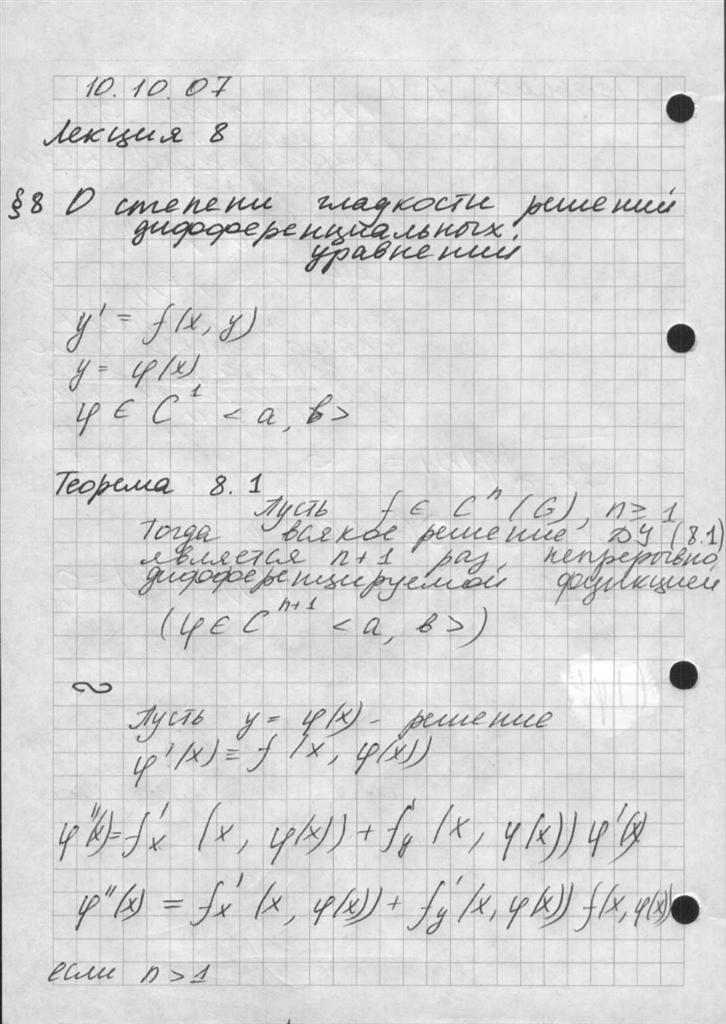 10.10.07
Лекция 8
§8 О степени гладкости решений
дифференциальных
уравнений
y' = f(x, y)
y = φ(x)
φ ∈ C¹ <a, b>
Теорема 8.1
Пусть f ∈ Cⁿ(G), n ≥ 1
Тогда всякое решение ДУ (8.1)
является n+1 раз непрерывно
дифференцируемой функцией
(φ ∈ Cⁿ⁺¹ <a, b>)
~
Пусть y = φ(x) - решение
φ'(x) ≡ f(x, φ(x))
φ''(x) = f'x (x, φ(x)) + f'y (x, φ(x)) φ'(x)
φ''(x) = fx' (x, φ(x)) + fy' (x, φ(x)) f(x, φ(x))
если n > 1